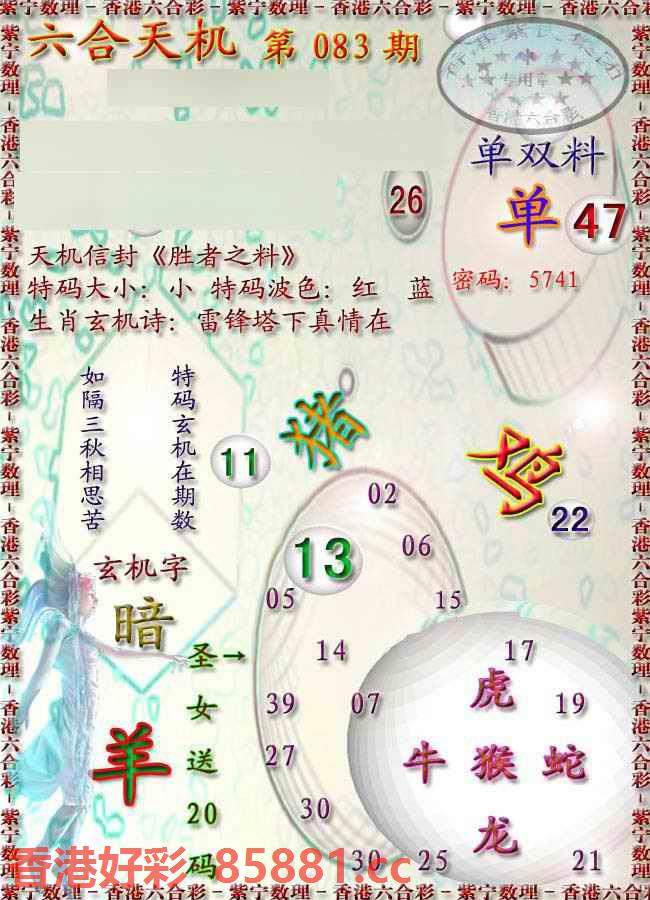 紫宁数理－香港六合彩－紫宁数理－香港六合彩－紫宁数理－香港六合彩－紫宁数理
六合天机 第 083 期
专用章
香港六合彩
单双料
单 47
26
天机信封《胜者之料》
特码大小：小 特码波色：红 蓝
密码：5741
生肖玄机诗：雷锋塔下真情在
特码玄机在期数
如隔三秋相思苦
猪
鸡
11
22
02
13
06
05
15
玄机字
暗
圣→
女
送
20
码
羊
14
17
39
07
虎
19
27
牛 猴 蛇
30
龙
30
25
21
香港好彩 85881.cc
紫宁数理－香港六合彩－紫宁数理－香港六合彩－紫宁数理－香港六合彩－紫宁数理